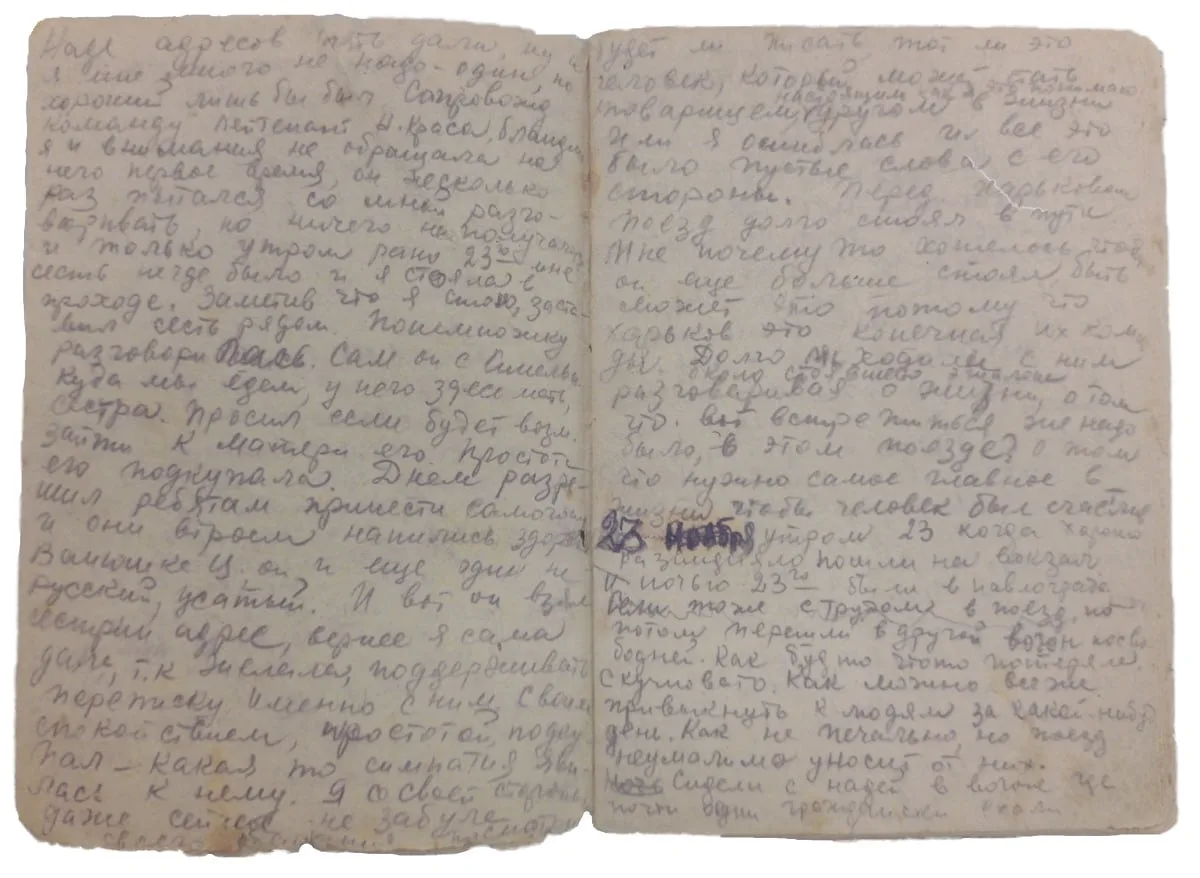 Наде адресов пять дали, ну а
я мне много не надо - один, но
хороший лишь бы был. Сопровожд
команду лейтенант Н. Краса, блондин
я и внимания не обращала на
него первое время, он несколько
раз пытался со мной разго-
варивать, но ничего не получалось
и только утром рано 23го мне
сесть негде было и я стояла в
проходе. Заметив что я стою, заста-
вил сесть рядом. Понемножку
разговорились. Сам он с Синельн
куда мы едем, у него здесь мать,
сестра. Просил если будет возм.
зайти к матери его. Простота
его подкупала. Днем разре-
шил ребятам принести самогону
и они втроем напились здорово
Ванюшке Ц. он и еще один не
русский, усатый. И вот он взял
сестрин адрес, вернее я сама
дала, т.к желала, поддерживать
переписку именно с ним своим
спокойствием, простотой, подку
пал - какая то симпатия яви-
лась к нему. Я со своей стороны
даже сейчас не забуду
своего
будет ли писать тот ли это
человек, который может стать
настоящим как я это понимаю
товарищем, другом в жизни
Или я ошиблась и все это
было пустые слова с его
стороны. Перед Харьковом
поезд долго стоял в пути
Мне почему то хотелось чтобы
он еще больше стоял, быть
может это потому что
Харьков это конечная их коман
ды. Долго мы ходили с ним
около стоявшего эшалона
разговаривая о жизни, о том
что вот встретиться же надо
было, в этом поезде? о том
что нужно самое главное в
жизни чтобы человек был счастлив
23 Ноября утром 23 когда хорошо
развиднело пошли на вокзал
И ночью 23го были в Павлограде
Сели тоже с трудом в поезд, но
потом перешли в другой вогон посво
бодней. Как будто что то потеряли
Скучновато. Как можно все же
привыкнуть к людям за какой нибудь
день. Как не печально, но поезд
неумолимо уносит от них.
Сидели с Надей в вогоне где
почти одни гражданские ехали